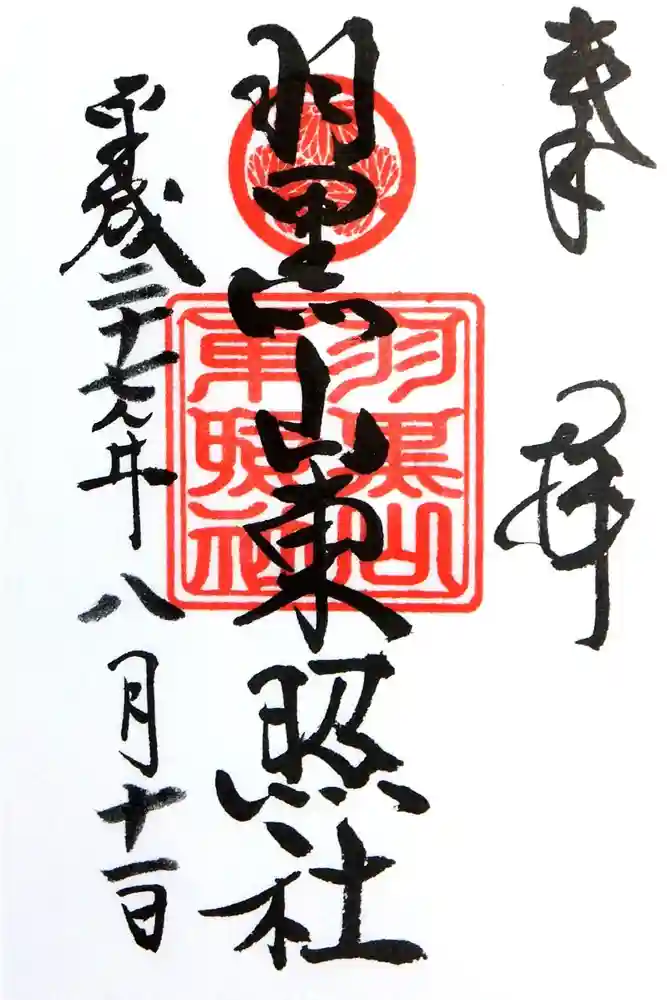 奉拝
羽黒山東照社
羽黒山
東照社
平成二十七年八月十一日